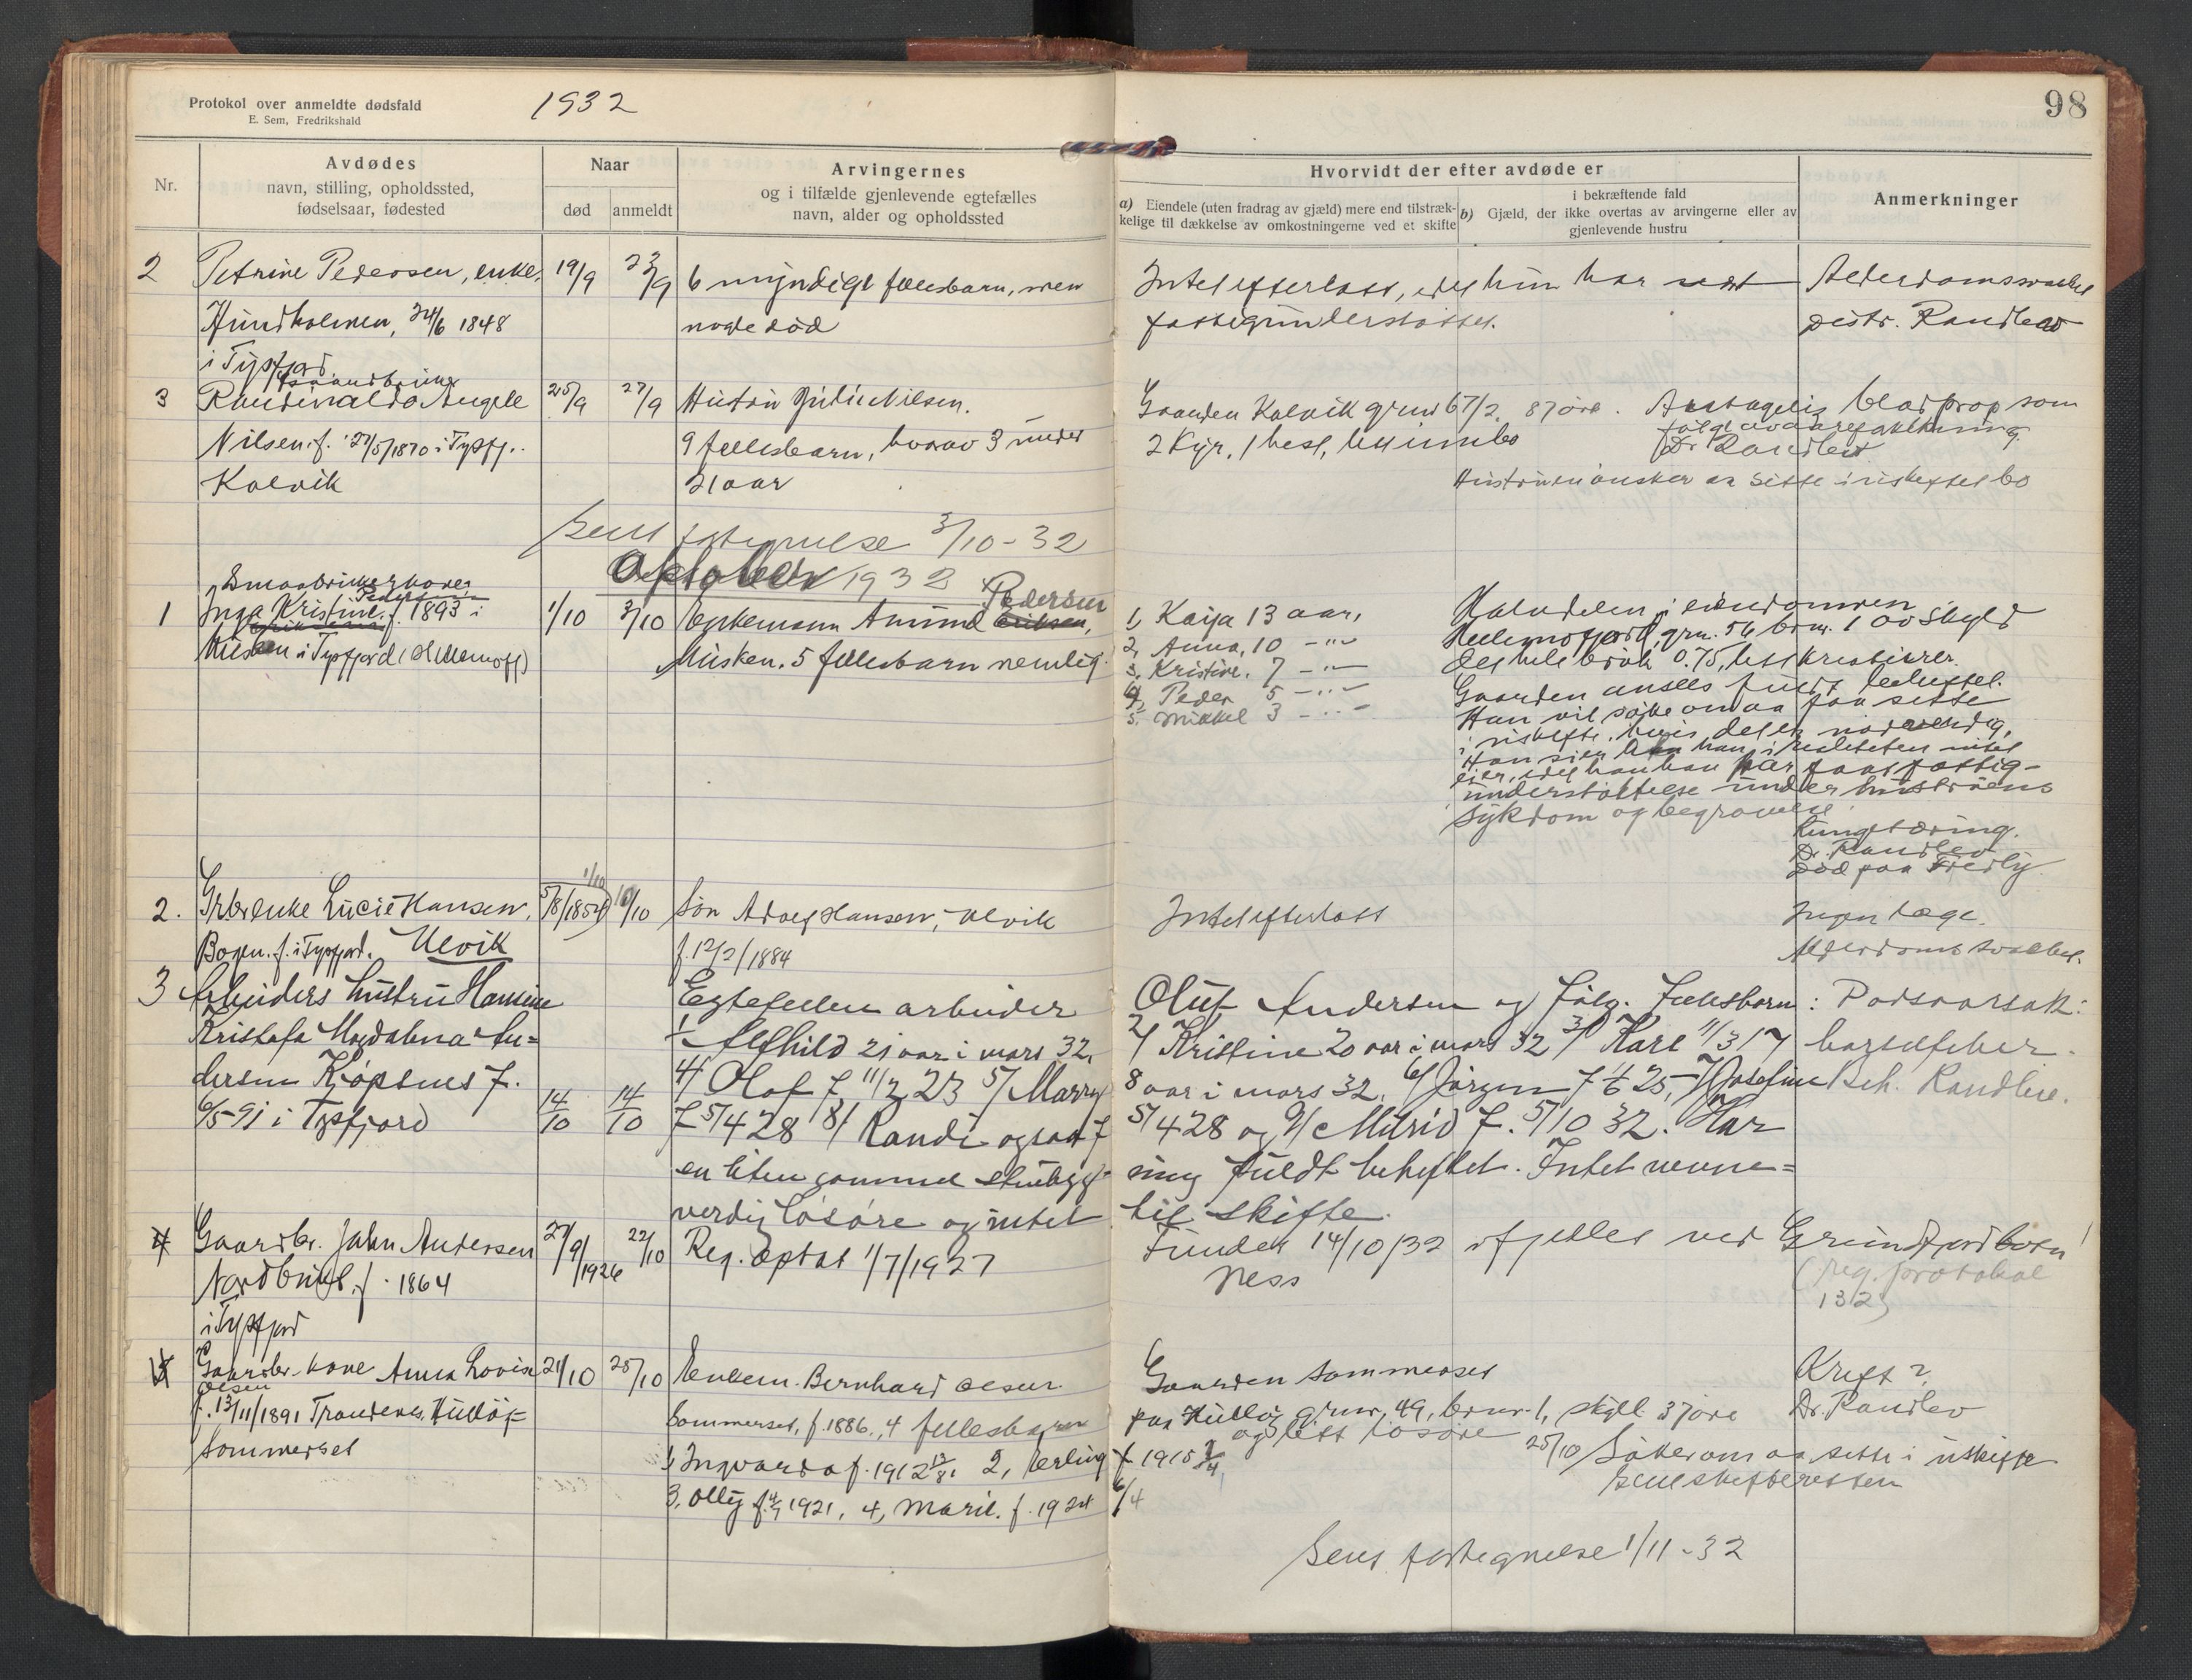 Protokol over anmeldte dødsfald
E. Sem, Fredrikshald
1932
98
Nr.
Avdødes
navn, stilling, opholdssted,
fødselsaar, fødested
Naar
død
anmeldt
Arvingernes
og i tilfælde gjenlevende egtefælles
navn, alder og opholdssted
Hvorvidt der efter avdøde er
a) Eiendele (uten fradrag av gjæld) mere end tilstræk-
kelige til dækkelse av omkostningerne ved et skifte
i bekræftende fald
b) Gjæld, der ikke overtas av arvingerne eller av
gjenlevende hustru
Anmerkninger
2 Petrine Pedersen, enke, 19/9 23/9 6 myndige fællesbarn, men
Hundholmen, 24/6 1848 nogle død
i Tysfjord
Intet efterlatt, idet hun har
fattigunderstøttet.
Alderdomssvakhet
Distr. Randlev
3 Gaardbruker
Nilsen f. 27/5/1870 i Tysfj.
Kalvik
25/9 27/9 Hustru Julie Nilsen.
9 fællesbarn, hvorav 3 under
21 aar
Gaarden Kalvik grnr 67/2. 87 øre.
2 Kjyr, 1 hest, litt innbo
blodprop som
følge av aareforkalkning
Dr Randlev
Hustruen ønsker aa sitte i uskiftet bo
Sent fortegnelse 3/10-32
Oktober 1932
1 Smaabrukerkone
Inga Kristine Pedersen f. 1893 i
Musken i Tysfjord (Hellemofj)
1/10 3/10 Enkemann Amund Eriksen, Pedersen
Musken. 5 fellesbarn nemlig
1, Kaija 13 aar,
2, Anna, 10 - "-
3, Kristine. 7 - "-
4, Peder 5 - "-
5. Mikkel 3 - "-
Halvdelen i eiendommen
Hellemofjord, grn. 56 brnr. 1 av skyld
0.75, litt kreaturer.
Gaarden ansees fuldt beheftet.
Han vil søke om aa faa sitte
i uskifte, hvis det er nødvendig,
Han sier han i realiteten intet
eier, idet han har faat fattig-
understøttelse under hustruens
sykdom og begravelse.
Lungetæring.
Dr. Randlev
Død paa Fredly
2. Grbr.enke Lucie Hansen, 5/8/1854 1/10 10/10 Søn Adolf Hansen, Ulvik
Bogen. f. i Tysfjord. Ulvik f. 12/2/1884
Intet efterlatt
Ingen læge.
Alderdomssvakhet.
3 Arbeiders hustru Hansine
Kristofa Magdalena An=
dersen Kjøpsnes f.
6/5-91 i Tysfjord
14/10 14/10
Egtefellen arbeider Oluf Andersen og følg. Fellesbarn:
1/ Alfhild 21 aar i mars 32, 2/ Kristine 20 aar i mars 32 3/ Kare 11/3 17
4/ Olaf f. 11/2 23 5/ Marry 8 aar i mars 32, 6/ Jørgen f 25, 7/ Josefine
f 5/4 28 8/ Randi ogsaa f 5/4 28 og 9/ Milrid f. 5/10 32. Har
en liten gammel stubygg- ning fuldt beheftet. Intet nevne=
verdig løsøre og intet til skifte.
Dødsaarsak:
barselfeber.
Beh. Randlev.
4 Gaardbr. Johan Andersen
Nordbukt f. 1864
i Tysfjord
22/10
1926
Reg. optat 1/7/1927
Funden 14/10/32 ved Grundfjordbotn
Ness
(reg. protokol
132)
5 Gaardbr.kone Anna Lovise
Olsen
f. 13/11/1891 Trondenes. Hulløi-
Sommerset
21/10 25/10 Enkem. Bernhard Olsen
Sommerset, f. 1886., 4 fellesbarn
1, Ingvarda f. 1912 2, Erling f 1915
3, Olly f. 1921, 4, Marie. f. 1924 6/4
Gaarden Sommerset
paa Hulløy grnr. 49, brnr. 1, skyld 37 øre
og litt løsøre
Kreft?
Dr. Randlev
25/10 Søker om aa sitte i uskifte
Sent skifteretten
Sent fortegnelse 1/11-32